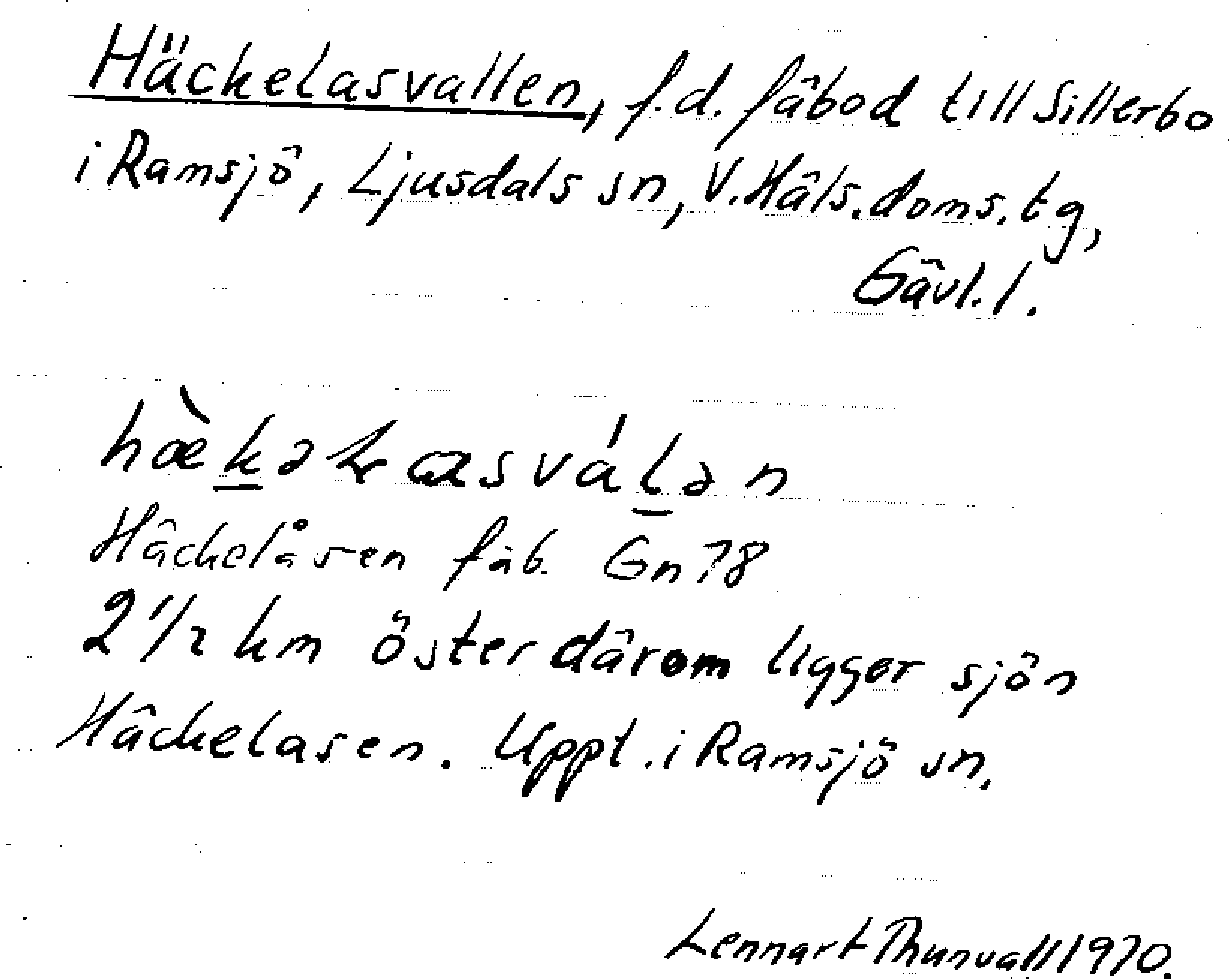 Häckelasvallen, f.d. fäbod till Sillerbo
i Ramsjö, Ljusdals sn, V. Häls. doms. tg,
Gävl. l.
Häckelåsen fäb. Gn 78
2 1/2 km öster därom ligger sjön
Häckelasen. Uppt. i Ramsjö sn.
Lennart Thunvall 1970.